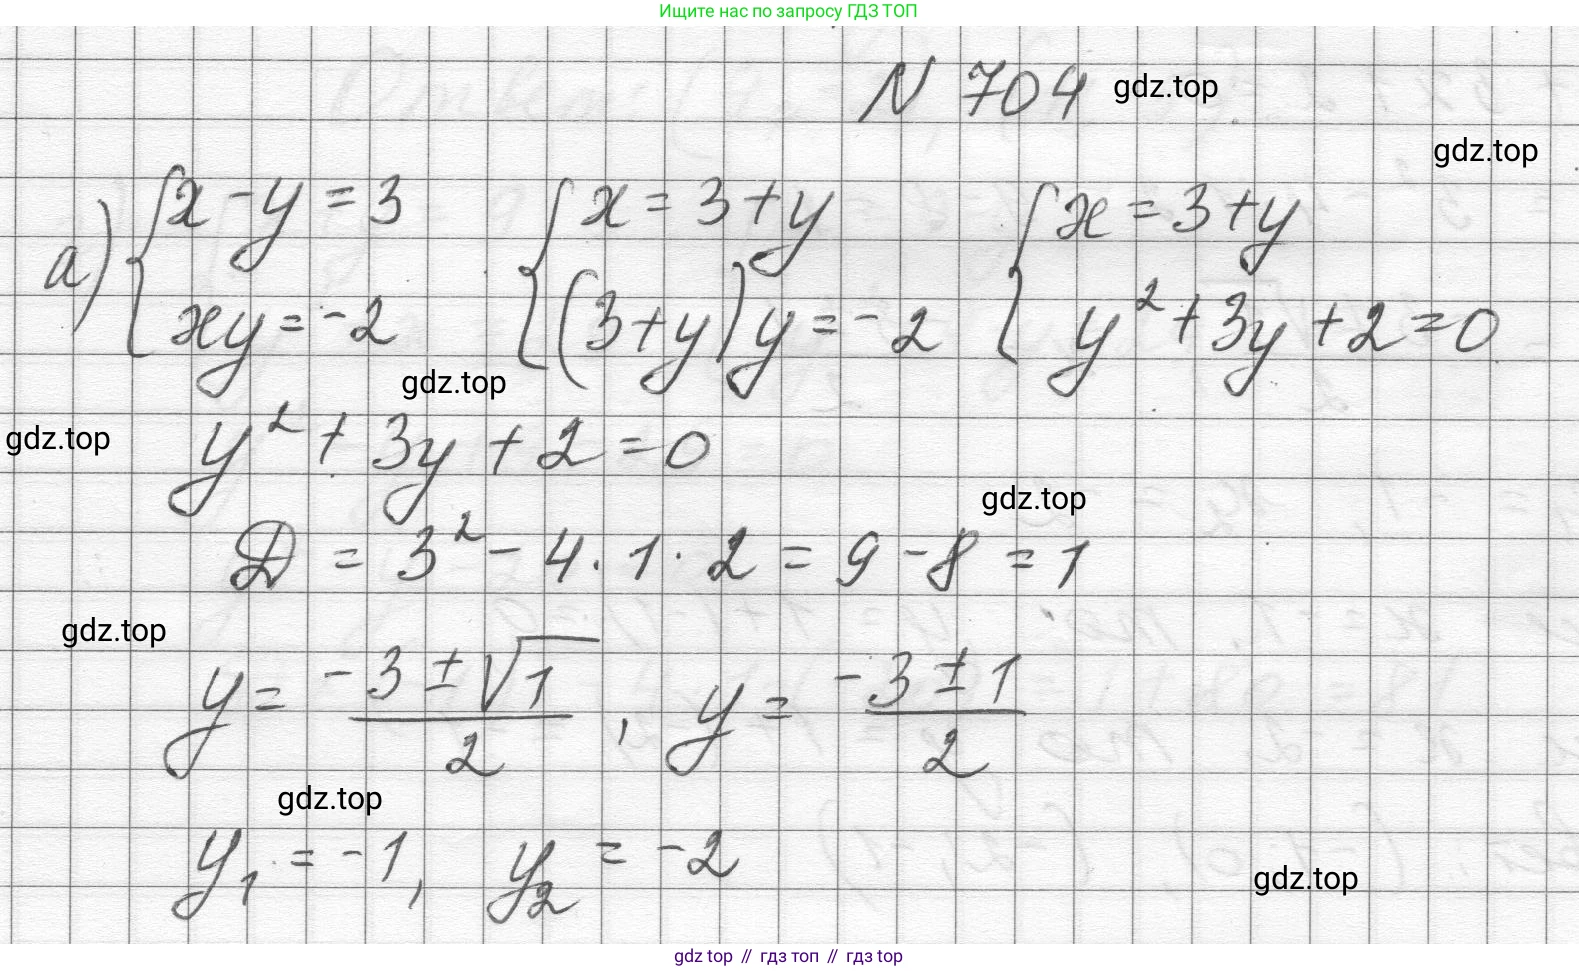 Ищите нас по запросу ГДЗ ТОП
N 704 gdz.top
gdz.top
а) { x - y = 3 { x = 3 + y { x = 3 + y
{ xy = -2 { (3 + y) y = -2 { y² + 3y + 2 = 0
gdz.top
gdz.top
y² + 3y + 2 = 0
gdz.top
D = 3² - 4 · 1 · 2 = 9 - 8 = 1
gdz.top
y = (-3 ± √1)/2 , y = (-3 ± 1)/2
gdz.top
y₁ = -1, y₂ = -2
gdz.top
gdz top // гдз топ // гдз top